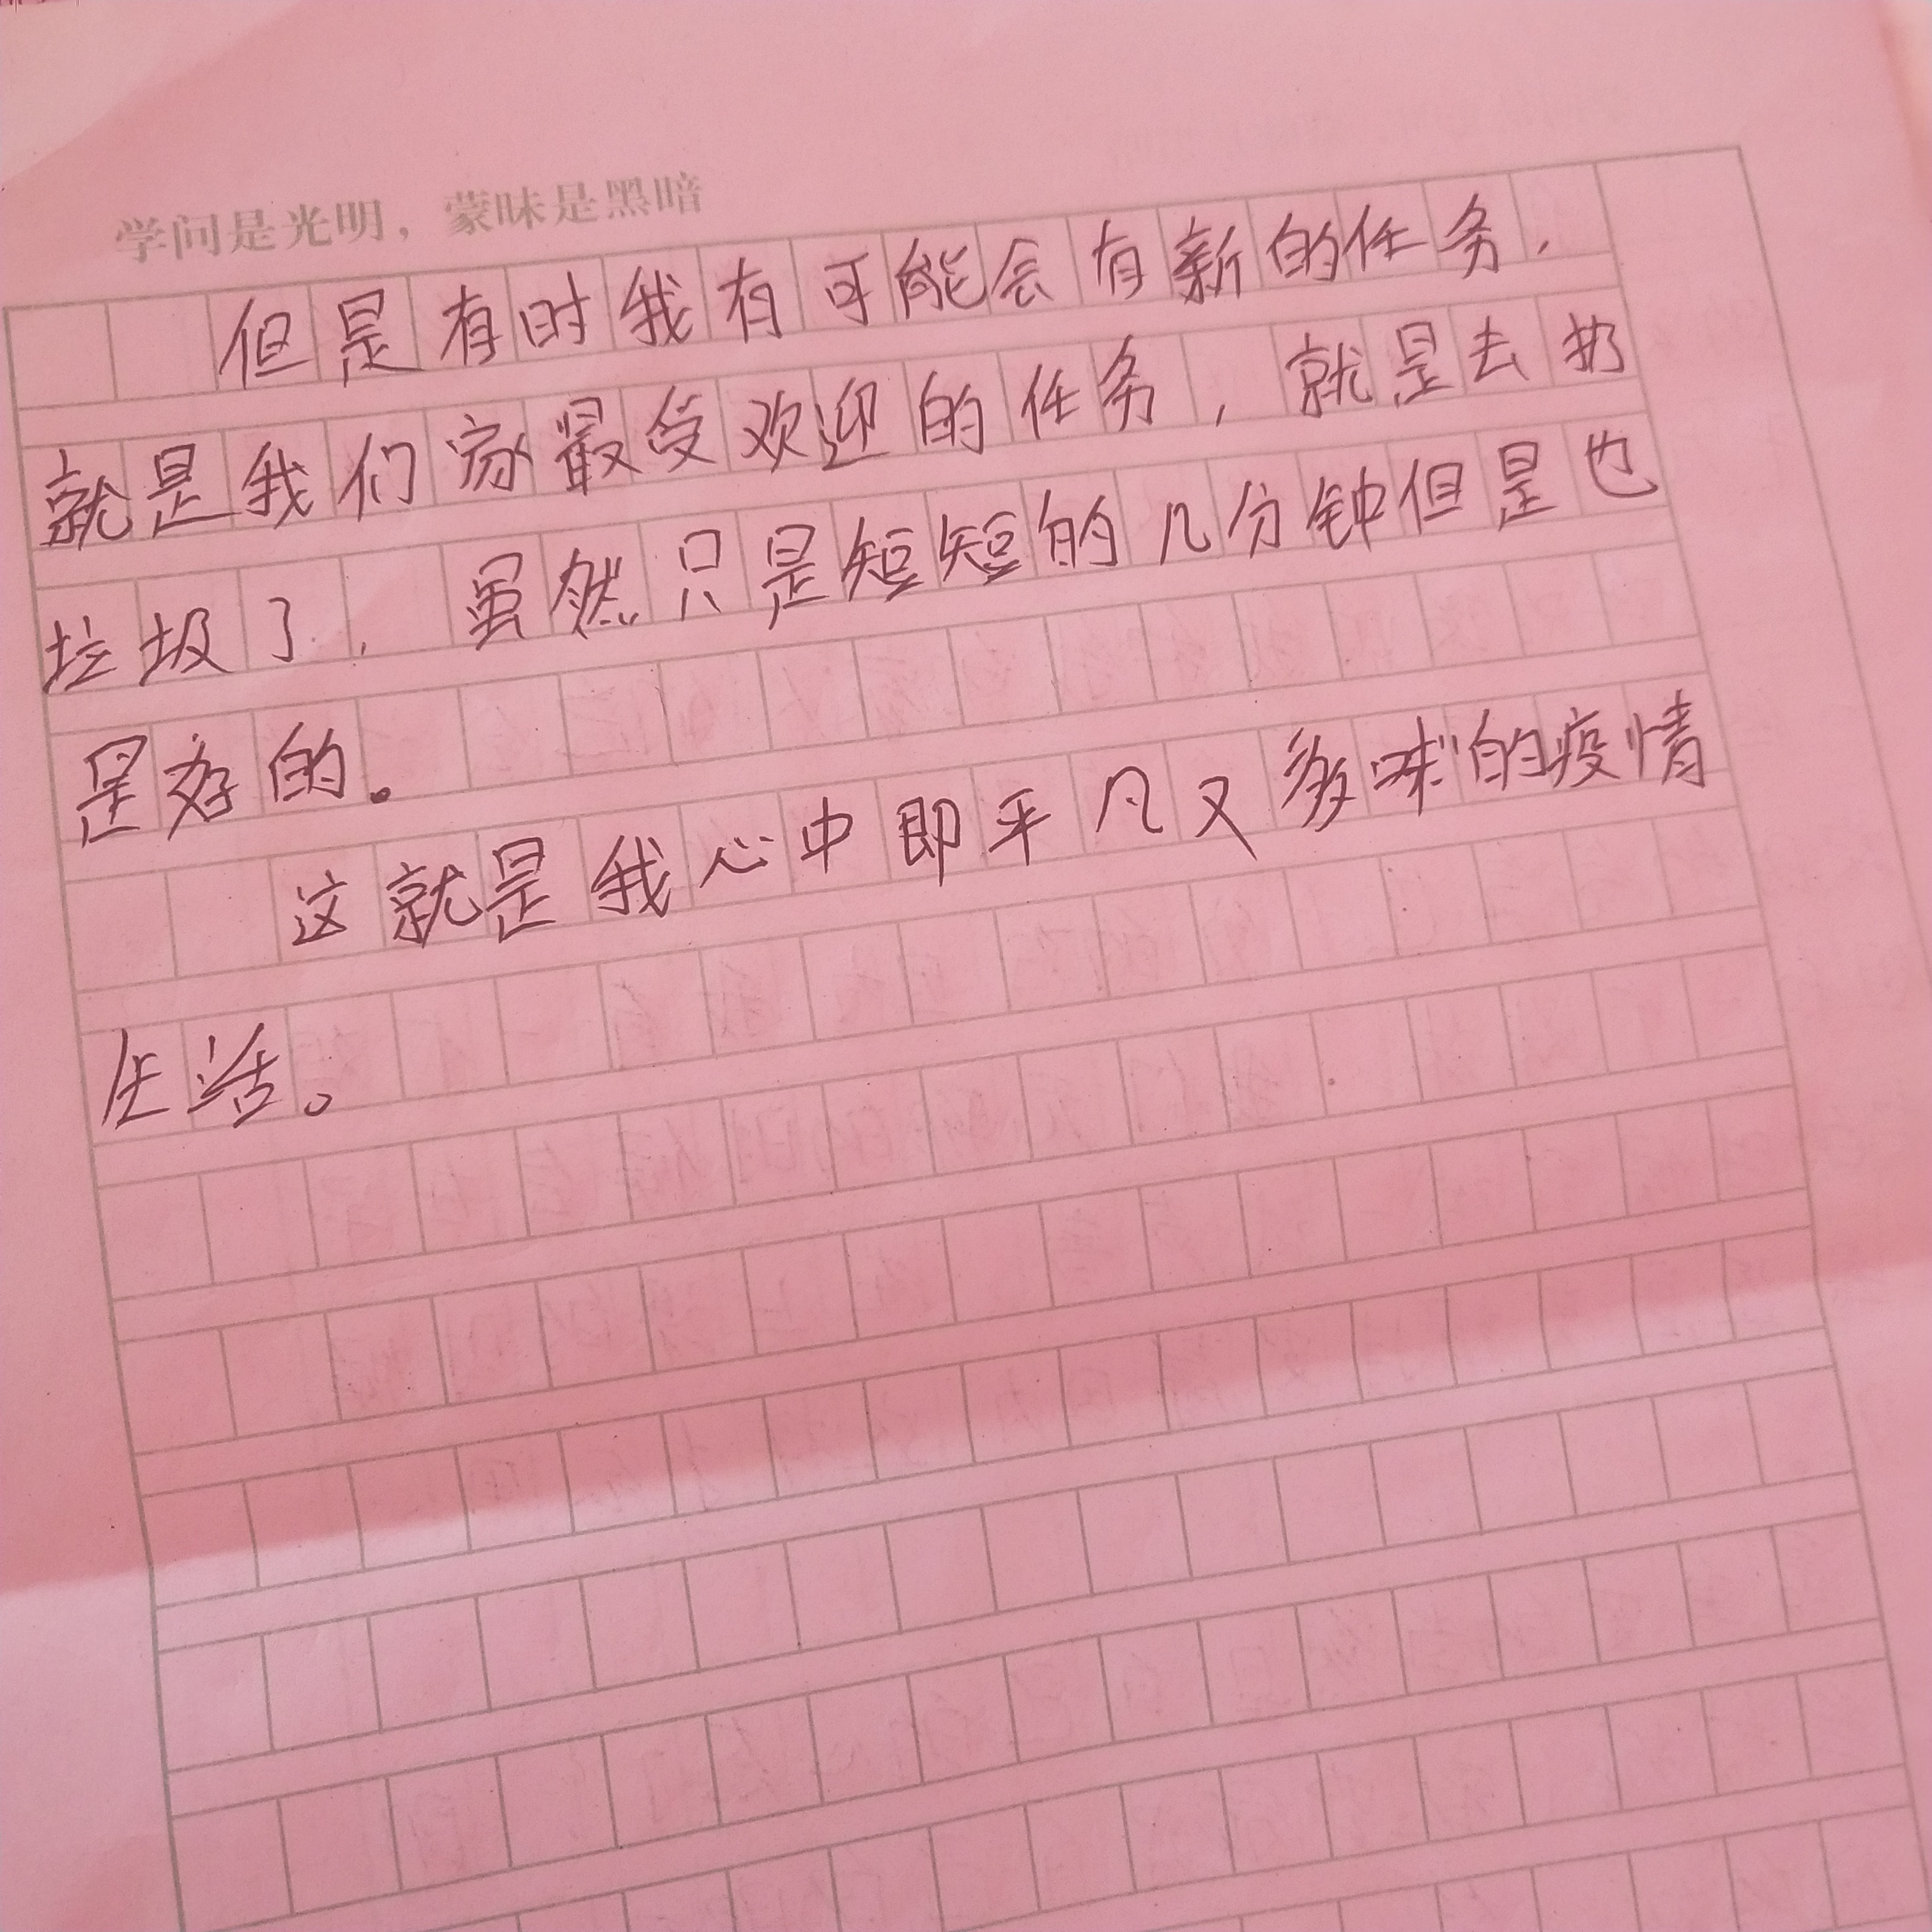 学问是光明，蒙昧是黑暗
但是有时我有可能会有新的任务，
就是我们家最受欢迎的任务，就是去扔
垃圾了，虽然只是短短的几分钟但是也
是好的。
这就是我心中即平凡又多味的疫情
生活。